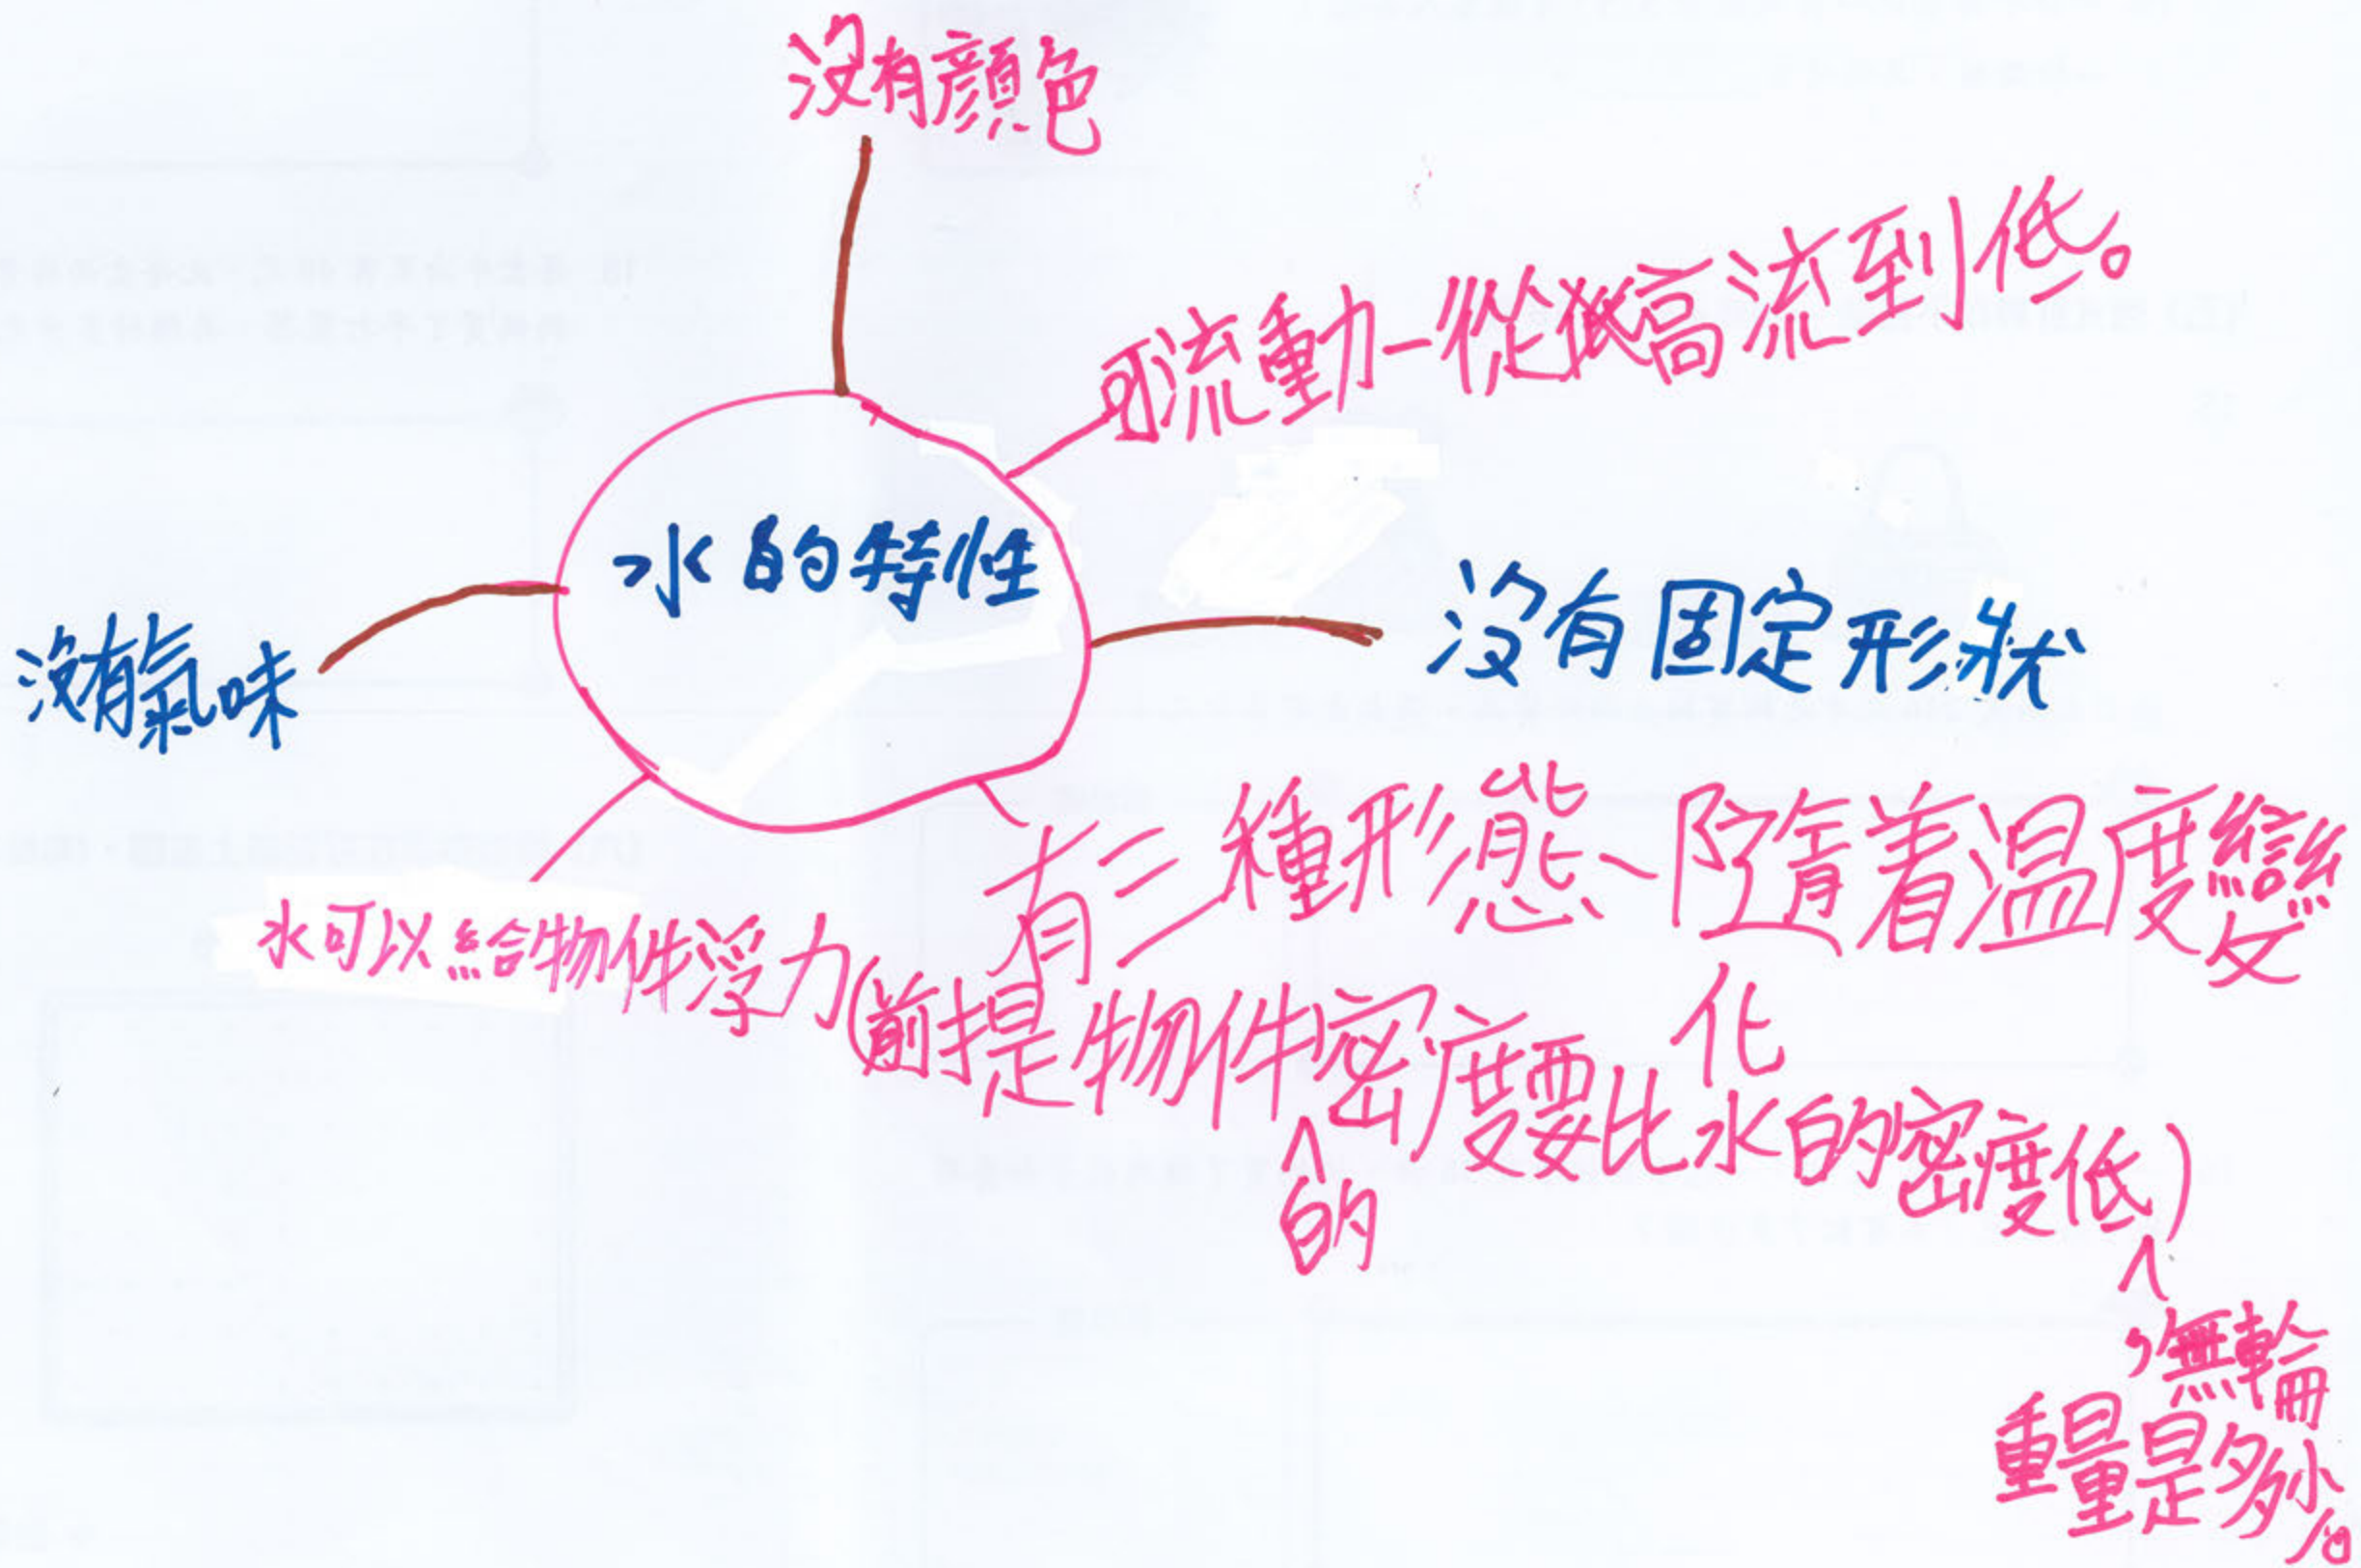 沒有顏色
可流動-從高流到低。
水的特性
沒有固定形狀
沒有氣味
有三種形態~隨着溫度變
化
水可以給物件浮力(前提是物件的密度要比水的密度低,無輪
重量是多小。)